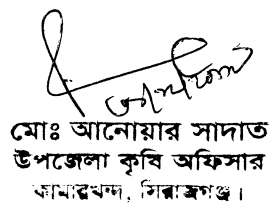 মোঃ আনোয়ার সাদাত
উপজেলা কৃষি অফিসার
কামারখন্দ, সিরাজগঞ্জ।